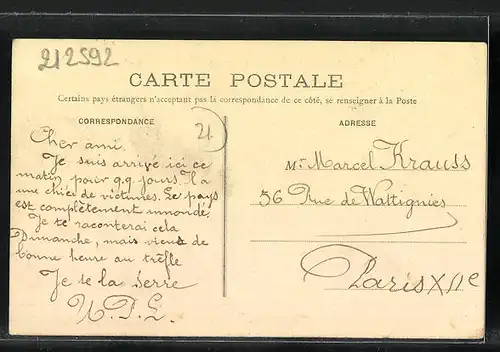 212592
CARTE POSTALE
Certains pays étrangers n'acceptant pas la correspondance de ce côté, se renseigner à la Poste
CORRESPONDANCE
21
Cher ami.
Je suis arrivé ici ce
matin pour q.q. jours Il a
une chiée de victimes. Le pays
est complètement innondé,
Je te raconterai cela
Dimanche, mais viens de
bonne heure au trèfle
Je te la serre
ADRESSE
Mr Marcel Krauss
56 Rue de Wattignies
Paris XIIe